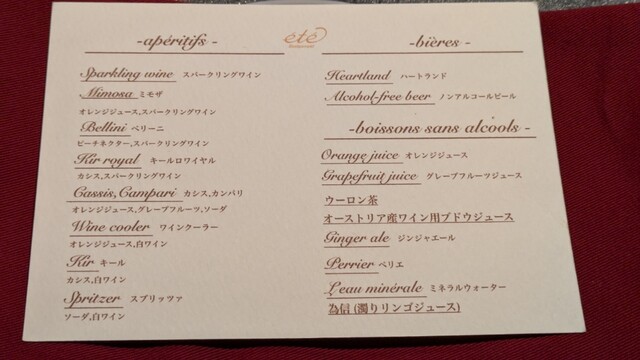 été
-apéritifs -
Sparkling wine スパークリングワイン
Mimosa ミモザ
オレンジジュース,スパークリングワイン
Bellini ベリーニ
ピーチネクター,スパークリングワイン
Kir royal キールロワイヤル
カシス,スパークリングワイン
Cassis,Campari カシス,カンパリ
オレンジジュース,グレープフルーツ,ソーダ
Wine cooler ワインクーラー
オレンジジュース,白ワイン
Kir キール
カシス,白ワイン
Spritzer スプリッツァ
ソーダ,白ワイン
-bières -
Heartland ハートランド
Alcohol-free beer ノンアルコールビール
-boissons sans alcools -
Orange juice オレンジジュース
Grapefruit juice グレープフルーツジュース
ウーロン茶
オーストリア産ワイン用ブドウジュース
Ginger ale ジンジャエール
Perrier ペリエ
L'eau minérale ミネラルウォーター
為信 (濁りリンゴジュース)